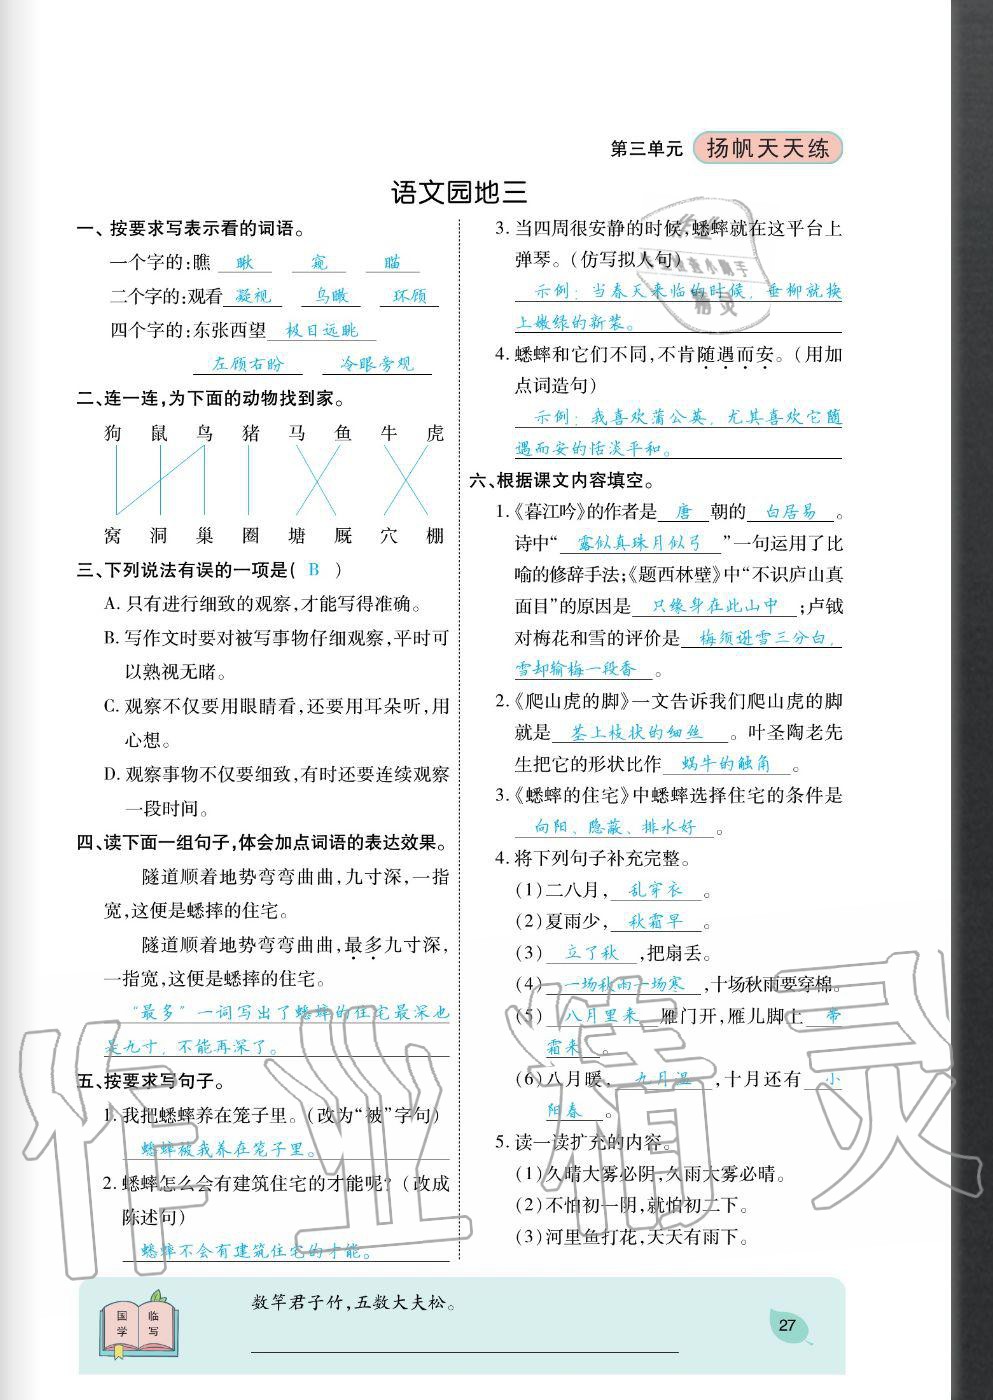 第三单元 扬帆天天练
语文园地三
一、按要求写表示看的词语。
一个字的:瞧 瞅 窥 瞄
二个字的:观看 凝视 鸟瞰 环顾
四个字的:东张西望 极目远眺
左顾右盼 冷眼旁观
二、连一连,为下面的动物找到家。
狗 鼠 鸟 猪 马 鱼 牛 虎
窝 洞 巢 圈 塘 厩 穴 棚
三、下列说法有误的一项是( B )
A. 只有进行细致的观察,才能写得准确。
B. 写作文时要对被写事物仔细观察,平时可
以熟视无睹。
C. 观察不仅要用眼睛看,还要用耳朵听,用
心想。
D. 观察事物不仅要细致,有时还要连续观察
一段时间。
四、读下面一组句子,体会加点词语的表达效果。
隧道顺着地势弯弯曲曲,九寸深,一指
宽,这便是蟋摔的住宅。
隧道顺着地势弯弯曲曲,最多九寸深,
一指宽,这便是蟋摔的住宅。
“最多”一词写出了蟋蟀的住宅最深也
是九寸，不能再深了。
五、按要求写句子。
1. 我把蟋蟀养在笼子里。(改为“被”字句)
蟋蟀被我养在笼子里。
2. 蟋蟀怎么会有建筑住宅的才能呢? (改成
陈述句)
蟋蟀不会有建筑住宅的才能。
3. 当四周很安静的时候,蟋蟀就在这平台上
弹琴。(仿写拟人句)
示例：当春天来临的时候，垂柳就换
上嫩绿的新装。
4. 蟋蟀和它们不同,不肯随遇而安。(用加
点词造句)
示例：我喜欢蒲公英，尤其喜欢它随
遇而安的恬淡平和。
六、根据课文内容填空。
1.《暮江吟》的作者是 唐 朝的 白居易 。
诗中“ 露似真珠月似弓 ”一句运用了比
喻的修辞手法;《题西林壁》中“不识庐山真
面目”的原因是 只缘身在此山中 ;卢钺
对梅花和雪的评价是 梅须逊雪三分白，
雪却输梅一段香 。
2.《爬山虎的脚》一文告诉我们爬山虎的脚
就是 茎上枝状的细丝 。叶圣陶老先
生把它的形状比作 蜗牛的触角 。
3.《蟋蟀的住宅》中蟋蟀选择住宅的条件是
向阳、隐蔽、排水好 。
4. 将下列句子补充完整。
(1)二八月, 乱穿衣 。
(2)夏雨少, 秋霜早 。
(3) 立了秋 ,把扇丢。
(4) 一场秋雨一场寒 ,十场秋雨要穿棉。
(5) 八月里来 雁门开,雁儿脚上 带
霜来 。
(6)八月暖, 九月温 ,十月还有 小
阳春 。
5. 读一读扩充的内容。
(1)久晴大雾必阴,久雨大雾必晴。
(2)不怕初一阴,就怕初二下。
(3)河里鱼打花,天天有雨下。
国学 临写
数竿君子竹,五数大夫松。
27
作业精灵